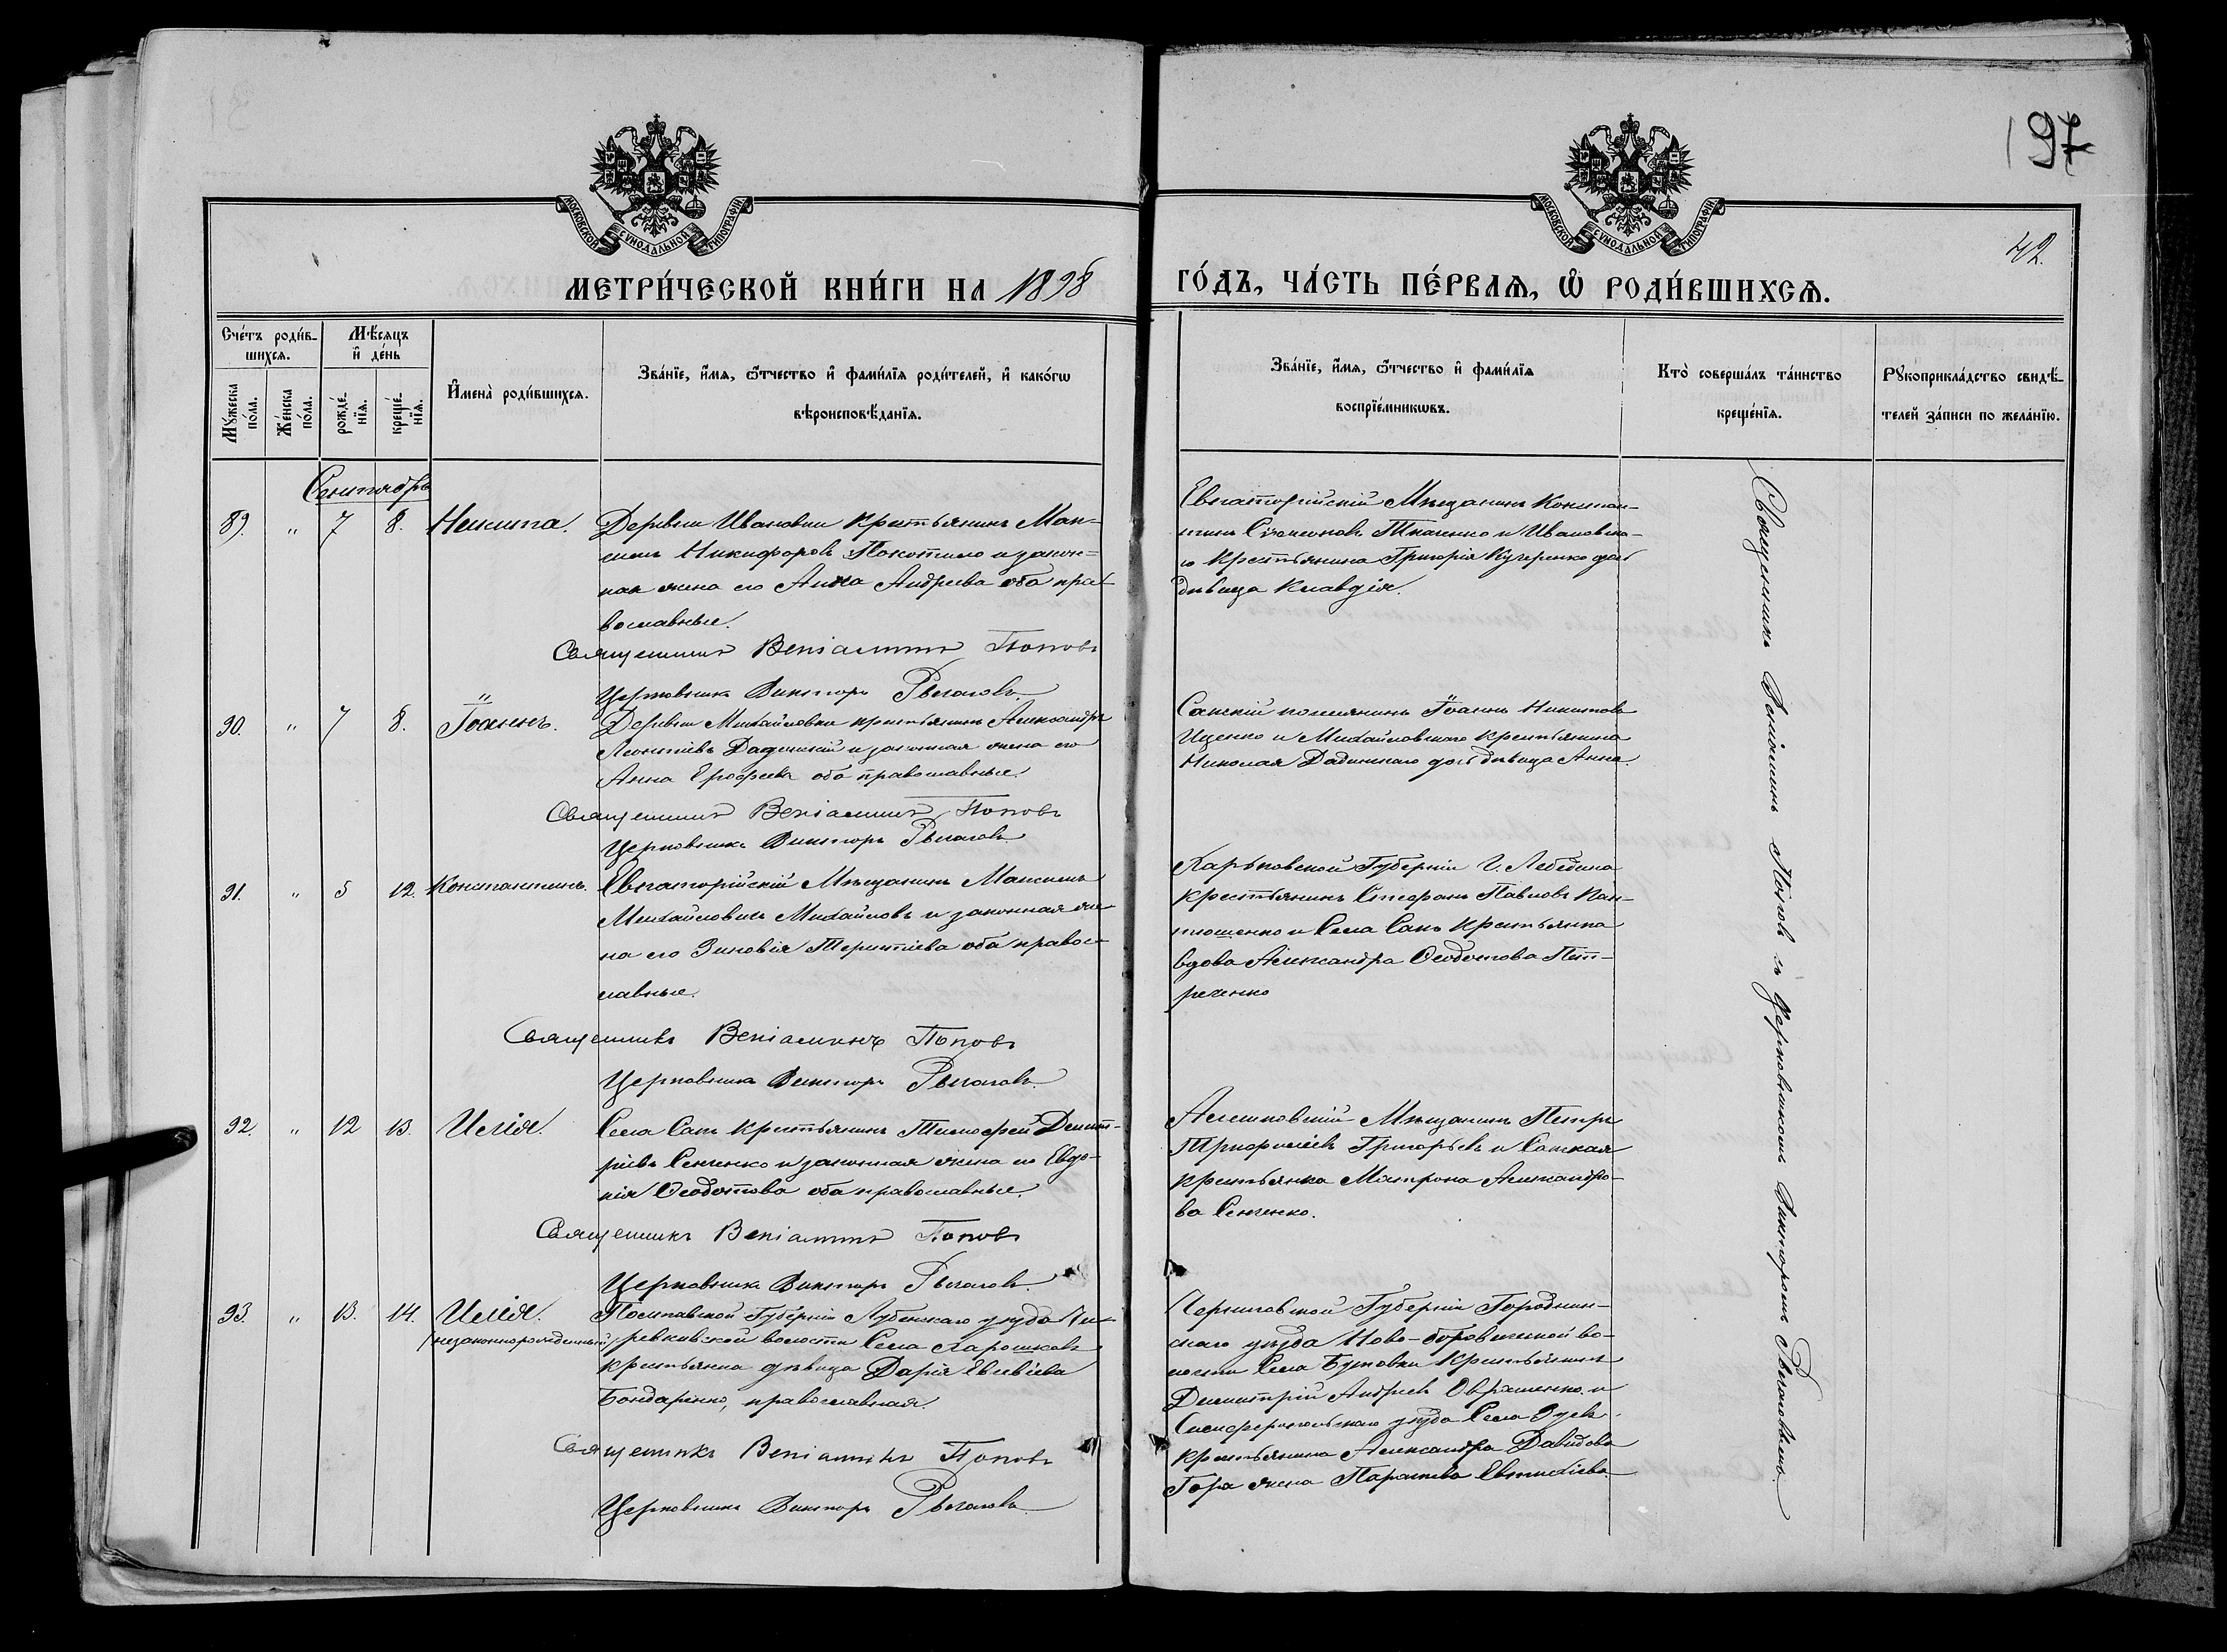 197
42.
МОСКОВСКОЙ СУНОДАЛЬНОЙ ТИПОГРАФІИ
МОСКОВСКОЙ СУНОДАЛЬНОЙ ТИПОГРАФІИ
МЕТРИ́ЧЕСКОЙ КНИ́ГИ НА 1898
ГО́ДЪ, ЧА́СТЬ ПЕ́РВАѦ, Ѡ҆ РОДИ́ВШИХСѦ.
Сче́тъ роди́в-
шихсѧ.
Мѣ́сѧцъ
и҆ де́нь
Мꙋ́жеска по́ла.
Же́нска по́ла.
рожде́-нїѧ.
креще́-нїѧ.
И҆мена̀ роди́вшихсѧ.
Зва́нїе, и҆́мѧ, ѻ҆́тчество и҆ фами́лїѧ роди́телей, и҆ како́гѡ
вѣроисповѣ́данїѧ.
Зва́нїе, и҆́мѧ, ѻ҆́тчество и҆ фами́лїѧ
воспрїе́мникѡвъ.
Кто̀ соверша́лъ та́инство
креще́нїѧ.
Рꙋкоприкла́дство свидѣ́-
телей за́писи по жела́нїю.
Сентябрь
89. " 7 8. Никита.
Деревни Ивановки Крестьянинъ Мак-
симъ Никифоровъ Покотило и закон-
ная жена его Анна Андреева оба пра-
вославные.
Священникъ Веніаминъ Поповъ
Церковникъ Викторъ Рычаговъ.
Евпаторійскій Мѣщанинъ Констан-
тинъ Симеоновъ Ткаченко и Ивановска-
го Крестьянина Григорія Кучеренко дочь
дѣвица Клавдія.
90. " 7 8. Іоаннъ.
Деревни Михайловки крестьянинъ Александръ
Леонтіевъ Дадинскій и законная жена его
Анна Ерофеева оба православные.
Священникъ Веніаминъ Поповъ
Церковникъ Викторъ Рычаговъ.
Сакскій поселянинъ Іоаннъ Никитовъ
Ищенко и Михайловскаго крестьянина
Николая Дадинскаго дочь дѣвица Анна.
91. " 5 12. Константинъ.
Евпаторійскій Мѣщанинъ Максимъ
Михайловичъ Михайловъ и законная же-
на его Зиновія Терентіева оба право-
славные.
Священникъ Веніаминъ Поповъ
Церковникъ Викторъ Рычаговъ.
Харьковской Губерніи Г. Лебедина
крестьянинъ Стефанъ Павловъ Пан-
тюшенко и Села Сакъ Крестьянка
вдова Александра Ѳеодотова Пет-
ренко
92. " 12 13. Илія.
Села Сакъ Крестьянинъ Тимофей Димит-
ріевъ Сенченко и законная жена его Евдо-
кія Ѳеодотова оба православные.
Священникъ Веніаминъ Поповъ
Церковникъ Викторъ Рычаговъ.
Алешковскій Мѣщанинъ Петръ
Трифиліевъ Григорьевъ и Сакская
крестьянка Матрона Александро-
ва Сенченко.
93. " 13. 14. Илія.
(незаконнорожденный)
Полтавской Губерніи Лубенскаго уѣзда
волости Села
крестьянка дѣвица Дарія Евсевіева
Бондаренко, православная.
Священникъ Веніаминъ Поповъ
Церковникъ Викторъ Рычаговъ.
Черниговской Губерніи Городнян-
скаго уѣзда Ново-боровичской во-
лости Села Бутовки Крестьянинъ
Димитрій Андреевъ и
Симферопольскаго уѣзда Села Зуевъ
крестьянина Александра Давидова
Гора жена Параскева Евтихіева
Священникъ Веніаминъ Поповъ съ Церковникомъ Викторомъ Рычаговымъ.